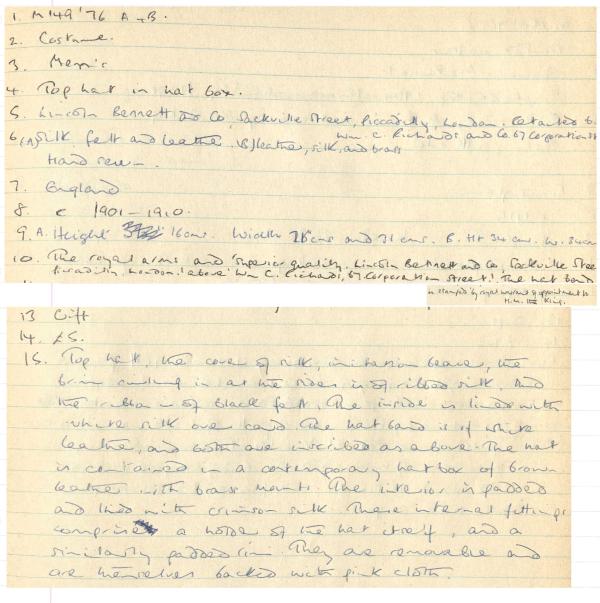 1. M149'76 A + B.
2. Costume.
3. Men's
4. Top hat in hat box.
5. Lincoln Bennett and Co, Sackville Street, Piccadilly, London. Retailed by
Wm. C. Richards, and Co. 67 Corporation St
6. (A) Silk, felt and leather. (B) leather, silk, and brass
Hand sewn.
7. England
8. c 1901-1910.
9. A. Height 16cms. Width 26cms and 31 cms. B. Ht 34 cms. W. 34cms
10. The royal arms and 'Superior quality, Lincoln Bennett and Co, Sackville Street
Piccadilly, London.' above 'Wm C. Richards, 67, Corporation Street'. The hat band
is stamped 'by royal warrant of appointment to
H.M. the King.
13 Gift
14. £5.
15. Top hat, the cover of silk, imitation beaver, the
brim curling in at the sides is of ribbed silk, and
the ribbon is of black felt. The inside is lined with
white silk over card. The hat band is of white
leather, and both are inscribed as above. The hat
is contained in a contemporary hat box of brown
leather with brass mounts. The interior is padded
and lined with crimson silk. These internal fittings
comprise a holder of the hat itself, and a
similarly padded rim. They are removable and
are themselves backed with pink cloth.